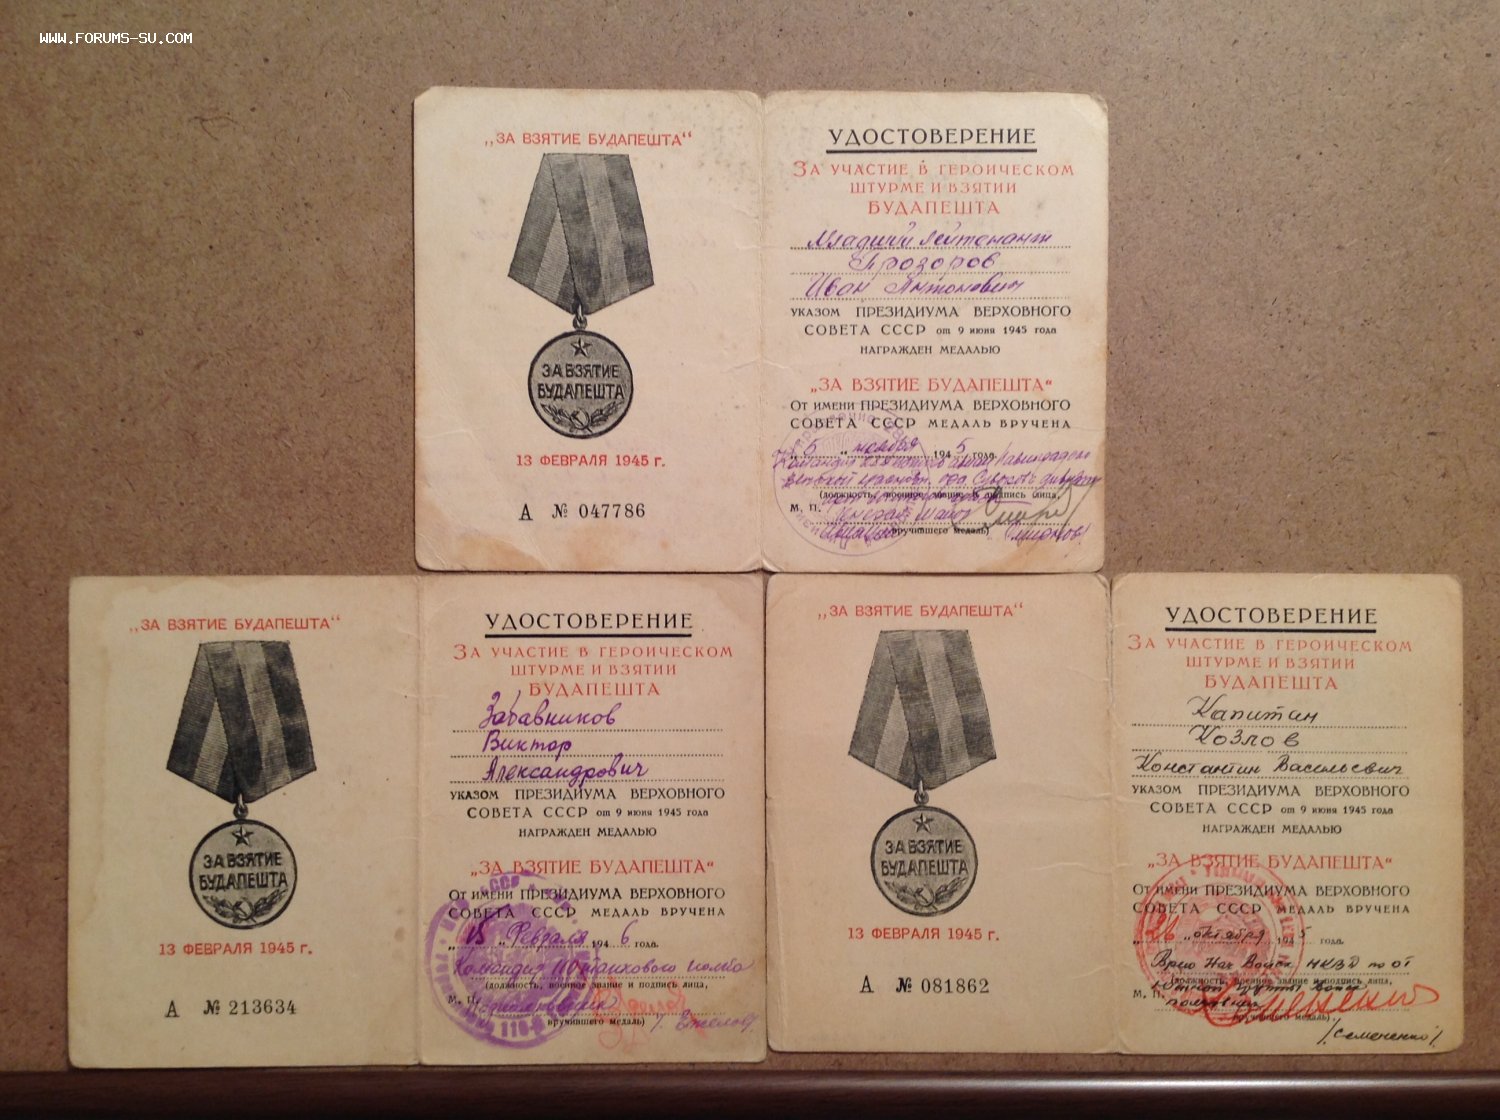 WWW.FORUMS-SU.COM
„ЗА ВЗЯТИЕ БУДАПЕШТА“
ЗА ВЗЯТИЕ
БУДАПЕШТА
13 ФЕВРАЛЯ 1945 г.
А № 047786
УДОСТОВЕРЕНИЕ
ЗА УЧАСТИЕ В ГЕРОИЧЕСКОМ
ШТУРМЕ И ВЗЯТИИ
БУДАПЕШТА
Младший лейтенант
Прозоров
Иван Антонович
УКАЗОМ ПРЕЗИДИУМА ВЕРХОВНОГО
СОВЕТА СССР от 9 июня 1945 года
НАГРАЖДЕН МЕДАЛЬЮ
„ЗА ВЗЯТИЕ БУДАПЕШТА“
От имени ПРЕЗИДИУМА ВЕРХОВНОГО
СОВЕТА СССР МЕДАЛЬ ВРУЧЕНА
„5“ ноября 1945 года.
Командир
(должность, военное звание и подпись лица,
М. П. Генерал майор
авиации вручившего медаль) /Смирнов/
„ЗА ВЗЯТИЕ БУДАПЕШТА“
ЗА ВЗЯТИЕ
БУДАПЕШТА
13 ФЕВРАЛЯ 1945 г.
А № 213634
УДОСТОВЕРЕНИЕ
ЗА УЧАСТИЕ В ГЕРОИЧЕСКОМ
ШТУРМЕ И ВЗЯТИИ
БУДАПЕШТА
Забавников
Виктор
Александрович
УКАЗОМ ПРЕЗИДИУМА ВЕРХОВНОГО
СОВЕТА СССР от 9 июня 1945 года
НАГРАЖДЕН МЕДАЛЬЮ
„ЗА ВЗЯТИЕ БУДАПЕШТА“
От имени ПРЕЗИДИУМА ВЕРХОВНОГО
СОВЕТА СССР МЕДАЛЬ ВРУЧЕНА
„15“ Февраля 1946 года.
Командир танкового полка
(должность, военное звание и подпись лица,
М. П.
вручившего медаль)
„ЗА ВЗЯТИЕ БУДАПЕШТА“
ЗА ВЗЯТИЕ
БУДАПЕШТА
13 ФЕВРАЛЯ 1945 г.
А № 081862
УДОСТОВЕРЕНИЕ
ЗА УЧАСТИЕ В ГЕРОИЧЕСКОМ
ШТУРМЕ И ВЗЯТИИ
БУДАПЕШТА
Капитан
Козлов
Константин Васильевич
УКАЗОМ ПРЕЗИДИУМА ВЕРХОВНОГО
СОВЕТА СССР от 9 июня 1945 года
НАГРАЖДЕН МЕДАЛЬЮ
„ЗА ВЗЯТИЕ БУДАПЕШТА“
От имени ПРЕЗИДИУМА ВЕРХОВНОГО
СОВЕТА СССР МЕДАЛЬ ВРУЧЕНА
октября 1945 года.
Врио Нач Войск НКВД по от
(должность, военное звание и подпись лица,
Южной группы войск
М. П. полковник
вручившего медаль)
/Семененко/